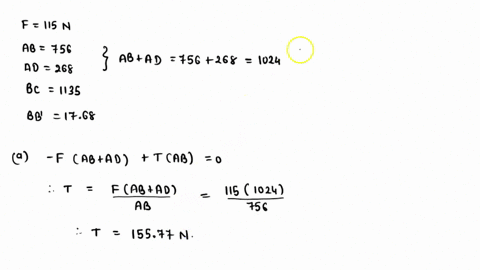 F = 115 N
AB = 756
AD = 268
} AB + AD = 756 + 268 = 1024
BC = 1135
BB' = 17.68
(a) -F (AB+AD) + T (AB) = 0
∴ T = F(AB+AD)/AB = 115(1024)/756
∴ T = 155.77 N.